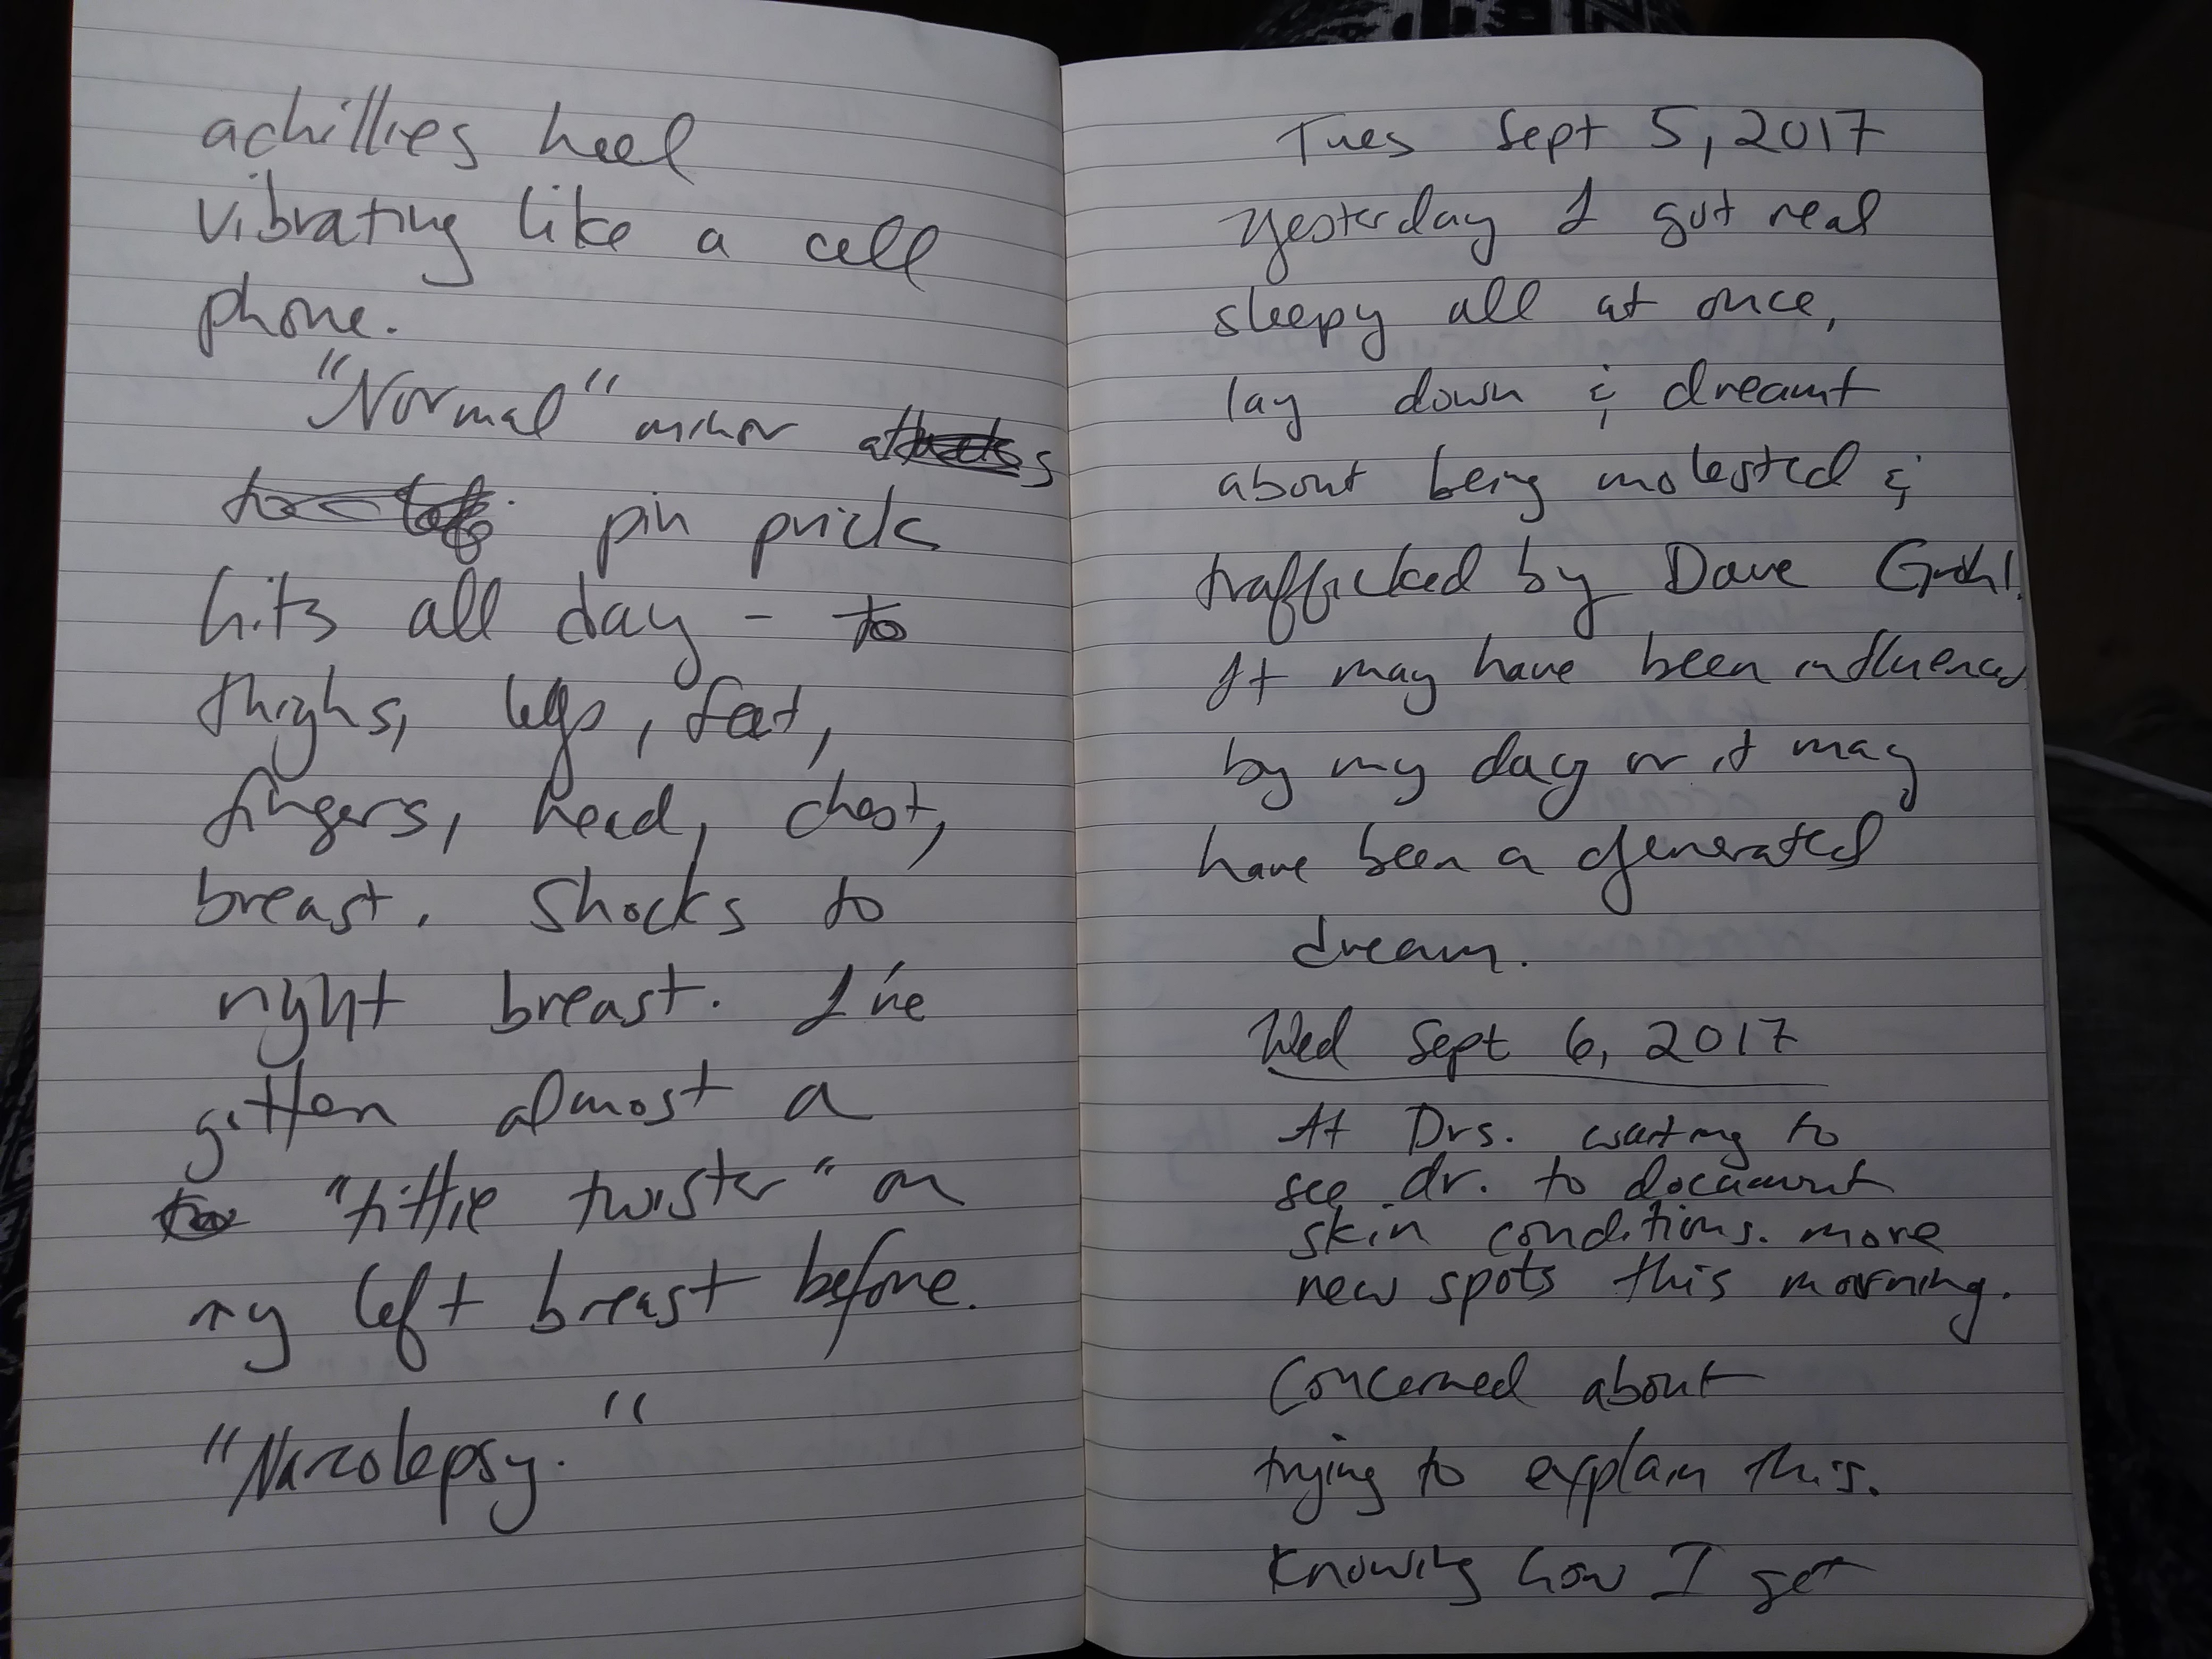 achillies heel
vibrating like a cell
phone.
"Normal" minor attacks
to pin prick
hits all day - to
thighs, legs, feet,
fingers, head, chest,
breast. Shocks to
right breast. I've
gotten almost a
"tittie twister" on
my left breast before.
"Narcolepsy."
Tues Sept 5, 2017
Yesterday I got real
sleepy all at once,
lay down & dreamt
about being molested &
trafficked by Dave Grohl.
It may have been influenced
by my day or it may
have been a generated
dream.
Wed Sept 6, 2017
At Drs. waiting to
see dr. to document
skin conditions. more
new spots this morning.
Concerned about
trying to explain this.
Knowing how I get